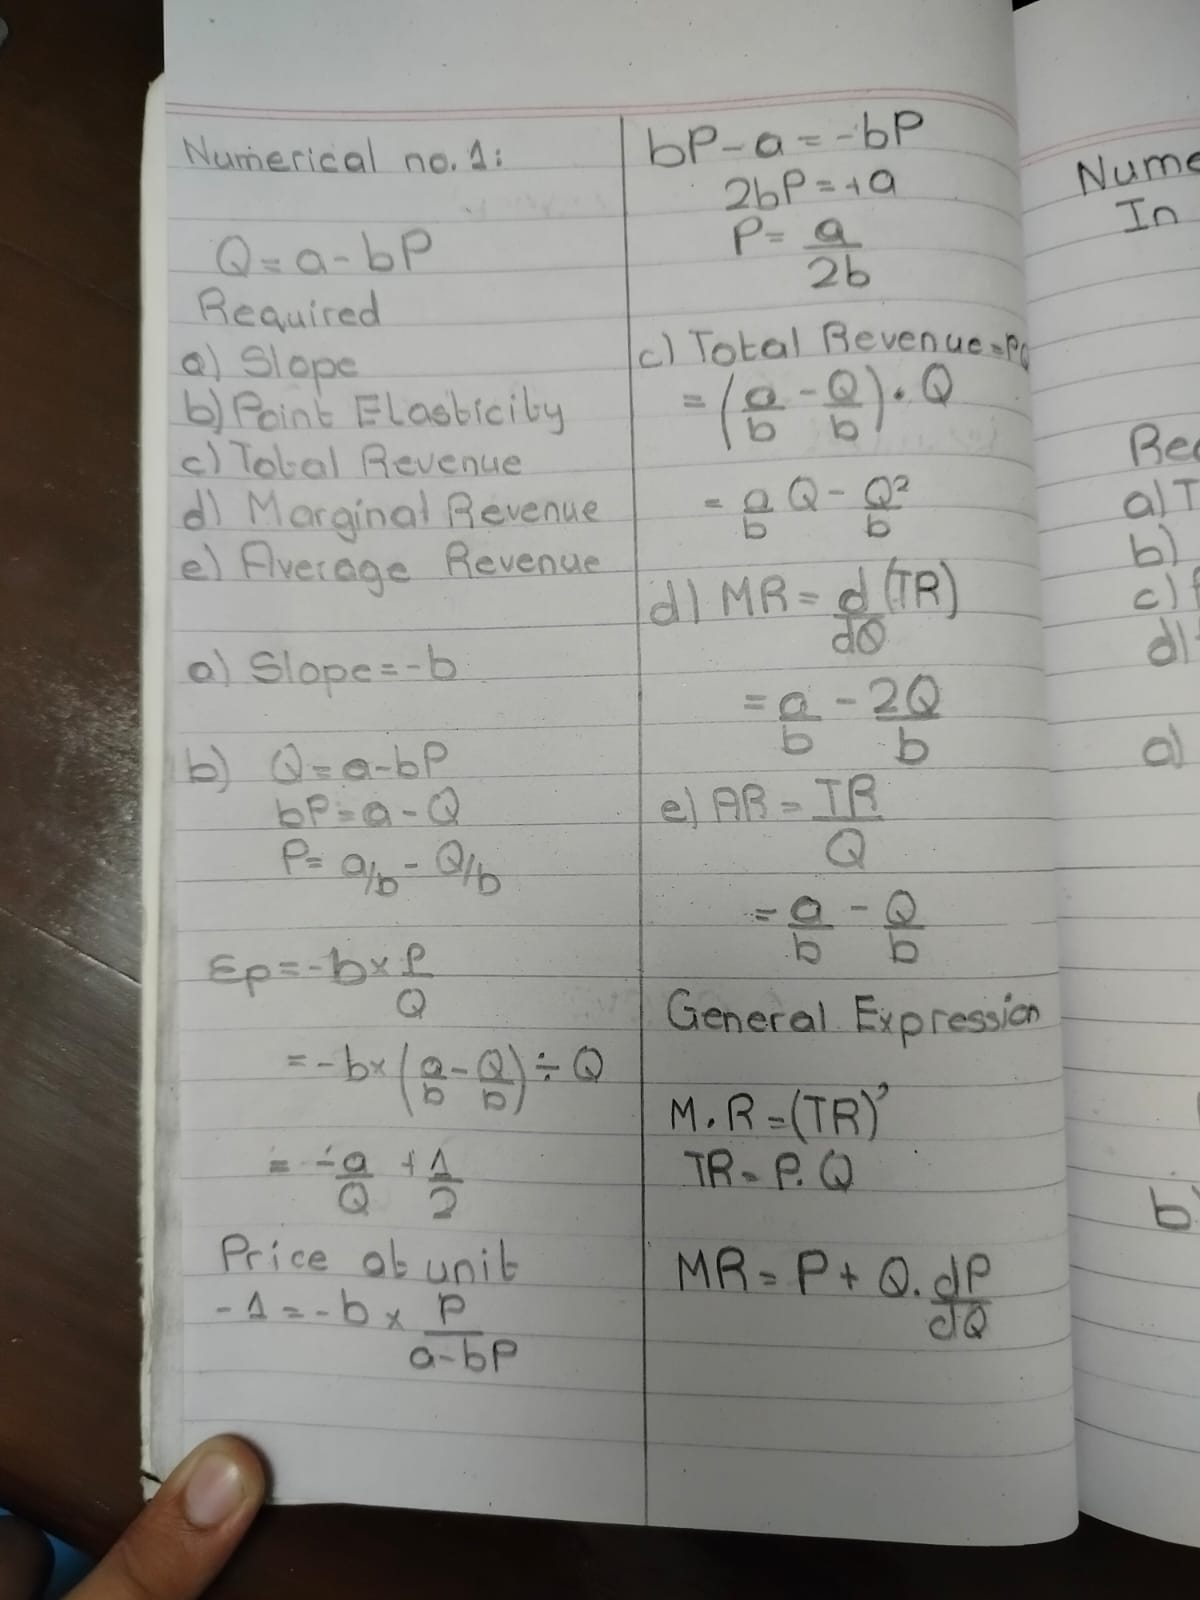 Numerical no. 1:
Q = a - bP
Required
a) Slope
b) Point Elasticity
c) Total Revenue
d) Marginal Revenue
e) Average Revenue
a) Slope = -b
b) Q = a - bP
bP = a - Q
P = a/b - Q/b
Ep = -b × P/Q
= -b × (a/b - Q/b) ÷ Q
= -a/Q + 1/2
Price at unit
-1 = -b × P/(a-bP)
bP - a = -bP
2bP = +a
P = a/2b
c) Total Revenue = PQ
= (a/b - Q/b) . Q
= a/b Q - Q²/b
d) MR = d/dQ (TR)
= a/b - 2Q/b
e) AR = TR/Q
= a/b - Q/b
General Expression
M.R = (TR)'
TR = P.Q
MR = P + Q. dP/dQ
Nume
In
a)
b)
c)
d)
a)
b)